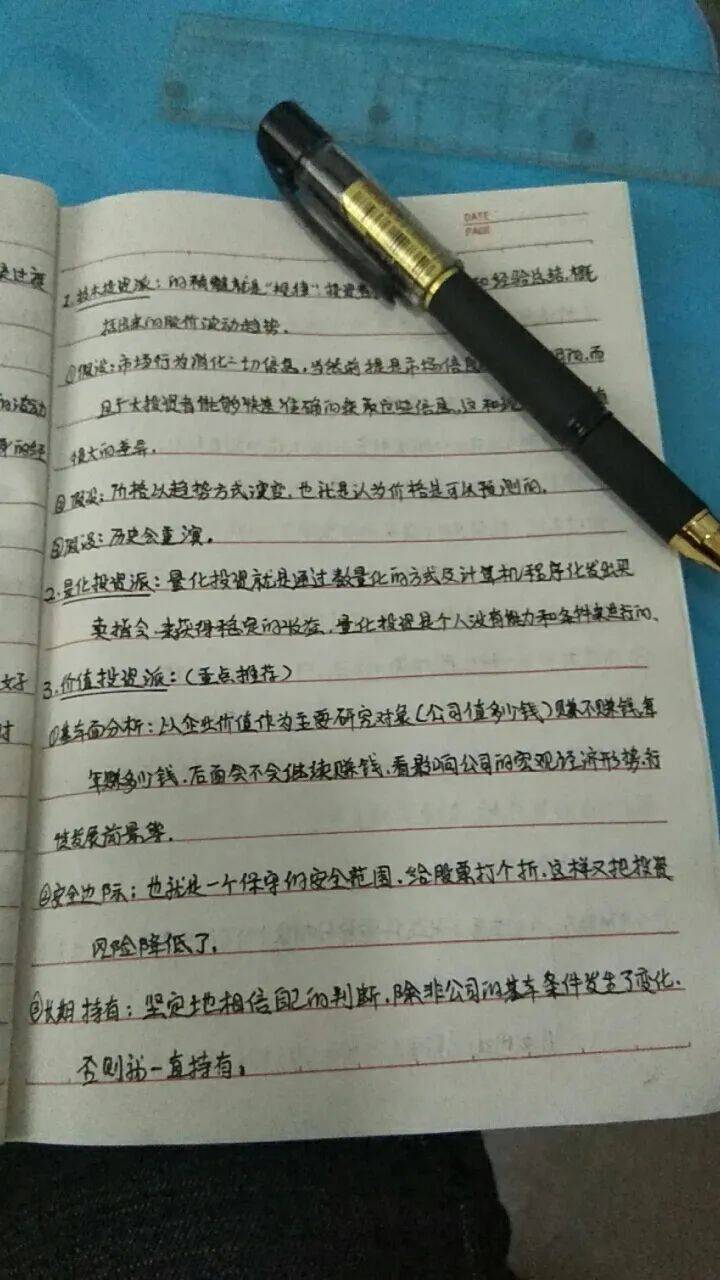 DATE
PAGE
1.技术投资派：的精髓就是“规律”；投资者 和经验总结，概
括出来的股价波动趋势。
①假设：市场行为消化一切信息，当然前提是市场信息 的，而
且广大投资者能够快速准确的获取这些信息，这和现
很大的差异。
②假设：价格以趋势方式演变，也就是认为价格是可以预测的。
③假设：历史会重演。
2.量化投资派：量化投资就是通过数量化的方式及计算机程序化发出买
卖指令，来获得稳定的收益，量化投资是个人没有能力和条件来进行的、
3.价值投资派：（重点推荐）
①基本面分析：以企业价值作为主要研究对象（公司值多少钱）赚不赚钱，年
年赚多少钱，后面会不会继续赚钱，看影响公司的宏观经济形势，行
业发展前景等。
②安全边际；也就是一个保守的安全范围、给股票打个折，这样又把投资
风险降低了。
③长期持有；坚定地相信自己的判断，除非公司的基本条件发生了变化，
否则就一直持有。
过程
波动
的经
好
时